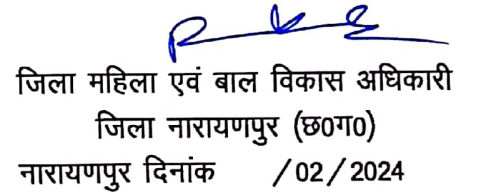 जिला महिला एवं बाल विकास अधिकारी
जिला नारायणपुर (छ0ग0)
नारायणपुर दिनांक /02/2024